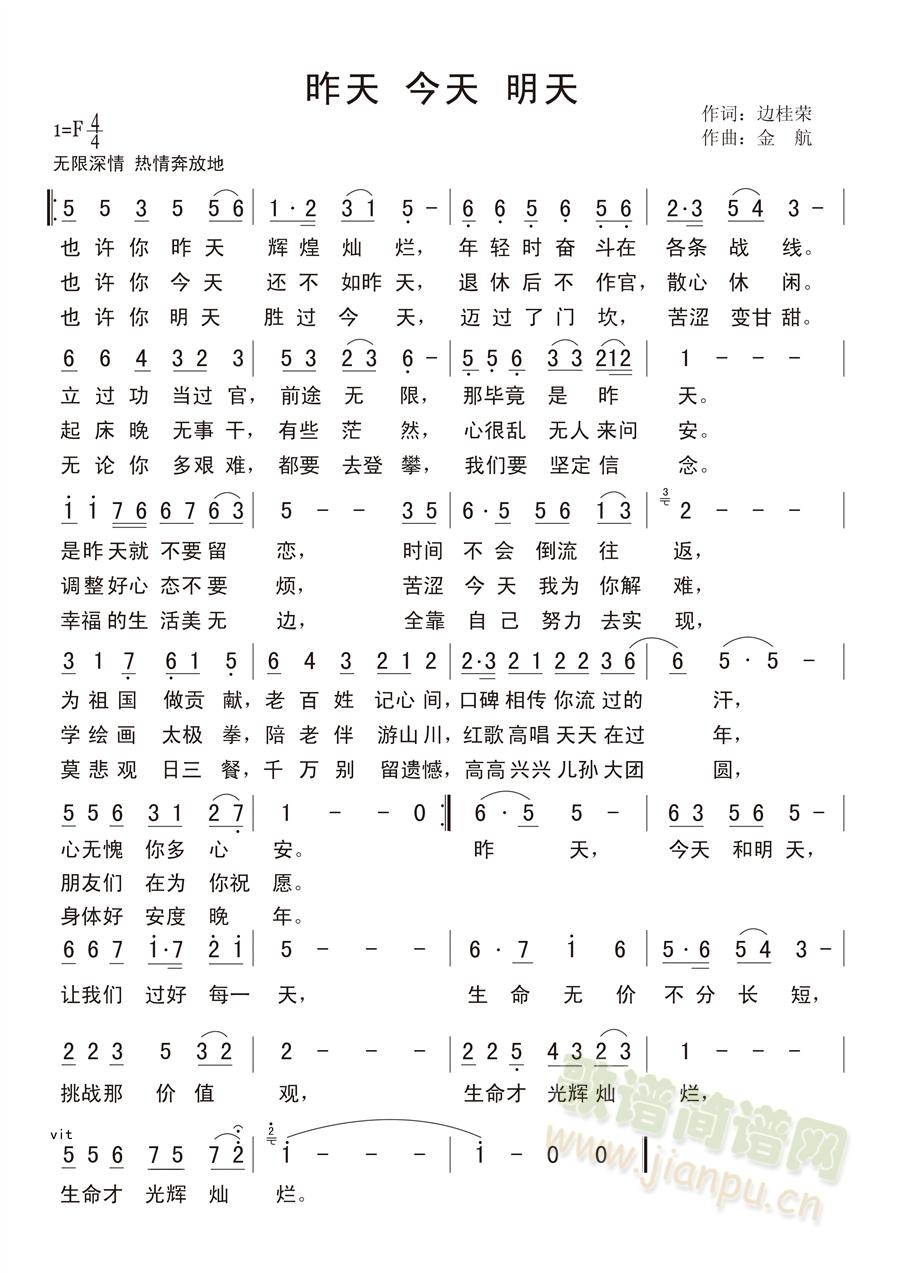 昨天 今天 明天
作词：边桂荣
1=F 4/4
作曲：金 航
无限深情 热情奔放地
5 5 3 5 5 6 | 1 · 2 3 1 5 - | 6 6 5 6 5 6 | 2 · 3 5 4 3 - |
也许你昨天 辉煌灿烂，年轻时奋斗在各条战线。
也许你今天 还不如昨天，退休后不作官，散心休闲。
也许你明天 胜过今天，迈过了门坎，苦涩变甘甜。
6 6 4 3 2 3 | 5 3 2 3 6 - | 5 5 6 3 3 2 1 2 | 1 - - - |
立过功当过官，前途无限，那毕竟是昨天。
起床晚无事干，有些茫然，心很乱无人来问安。
无论你多艰难，都要去登攀，我们要坚定信念。
1 1 7 6 6 7 6 3 | 5 - - 3 5 | 6 · 5 5 6 1 3 | 3 2 - - |
是昨天就不要留恋，时间不会倒流往返，
调整好心态不要烦，苦涩今天我为你解难，
幸福的生活美无边，全靠自己努力去实现，
3 1 7 6 1 5 | 6 4 3 2 1 2 | 2 · 3 2 1 2 2 3 6 | 6 5 · 5 - |
为祖国做贡献，老百姓记心间，口碑相传你流过的汗，
学绘画太极拳，陪老伴游山川，红歌高唱天天在过年，
莫悲观日三餐，千万别留遗憾，高高兴兴儿孙大团圆，
5 5 6 3 1 2 7 | 1 - - 0 :| 6 · 5 5 - | 6 3 5 6 6 - |
心无愧你多心安。 昨天，今天和明天，
朋友们在为你祝愿。
身体好安度晚年。
6 6 7 1 · 7 2 1 | 5 - - - | 6 · 7 1 6 | 5 · 6 5 4 3 - |
让我们过好每一天，生命无价不分长短，
2 2 3 5 3 2 | 2 - - - | 2 2 5 4 3 2 3 | 1 - - - |
挑战那价值观，生命才光辉灿烂，
vit
5 5 6 7 5 7 2 | 2 1 - - - | 1 - 0 0 |
生命才光辉灿烂。
歌谱简谱网
www.jianpu.cn